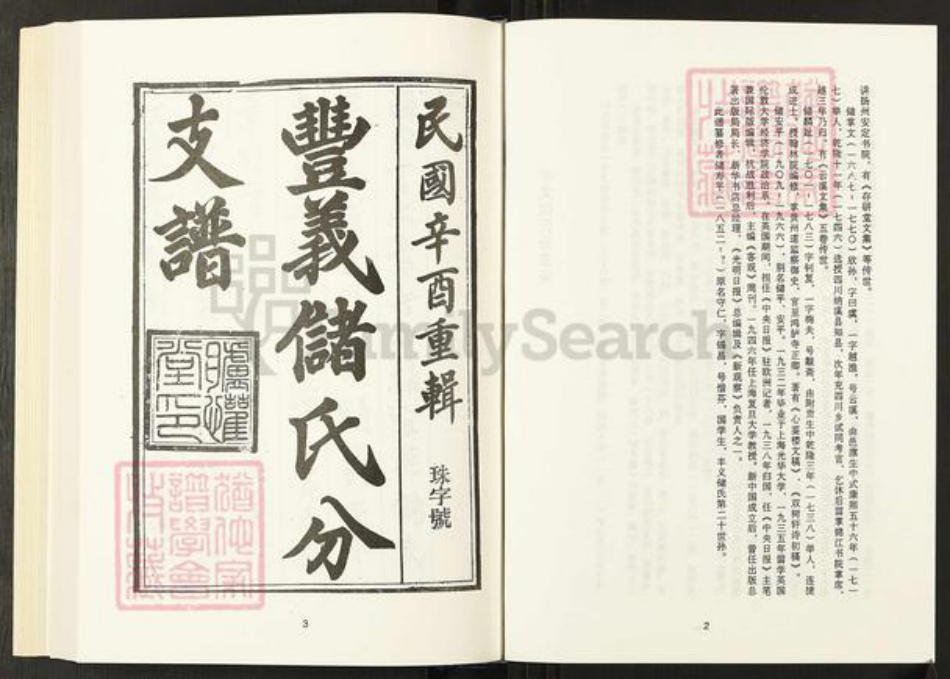 讲扬州安定书院。有《存研堂文集》等传世。
储掌文（一六八七-一七七〇）欣孙，字曰虞，一字越渔，号云溪，由邑廪生中式康熙五十六年（一七一
七）举人，乾隆十一年（一七四六）选授四川纳溪县知县，次年充四川乡试同考官，乞休后留掌锦江书院掌席，
越三年乃归。有《云溪文集》五卷传世。
储麟趾（一七〇一-一七八三）字钊复，一字梅夫，号履斋，由附贡生中乾隆三年（一七三八）举人，连捷
成进士，授翰林院编修，掌贵州道监察御史，官至鸿胪寺正卿。著有《心宴楼文稿》、《双树轩诗初稿》。
储安平（一九〇九-一九六六），别名储平、安平，一九三二年毕业于上海光华大学，一九三五年留学英国
伦敦大学经济学院政治系，在英国期间，担任《中央日报》驻欧洲记者，一九三八年归国，任《中央日报》主笔
兼国际版编辑，抗战胜利后，主编《客观》周刊。一九四六年任上海复旦大学教授。新中国成立后，曾任出版总
署出版局局长、新华书店总经理、《光明日报》总编辑及《新观察》负责人之一。
此谱纂修者储寿平（一八五二-？）原名守仁，字锡昌，号惜芬，国学生，丰义储氏第二十世孙。
2
民國辛酉重輯
珠字號
豐義儲氏分
支譜
3
FamilySearch